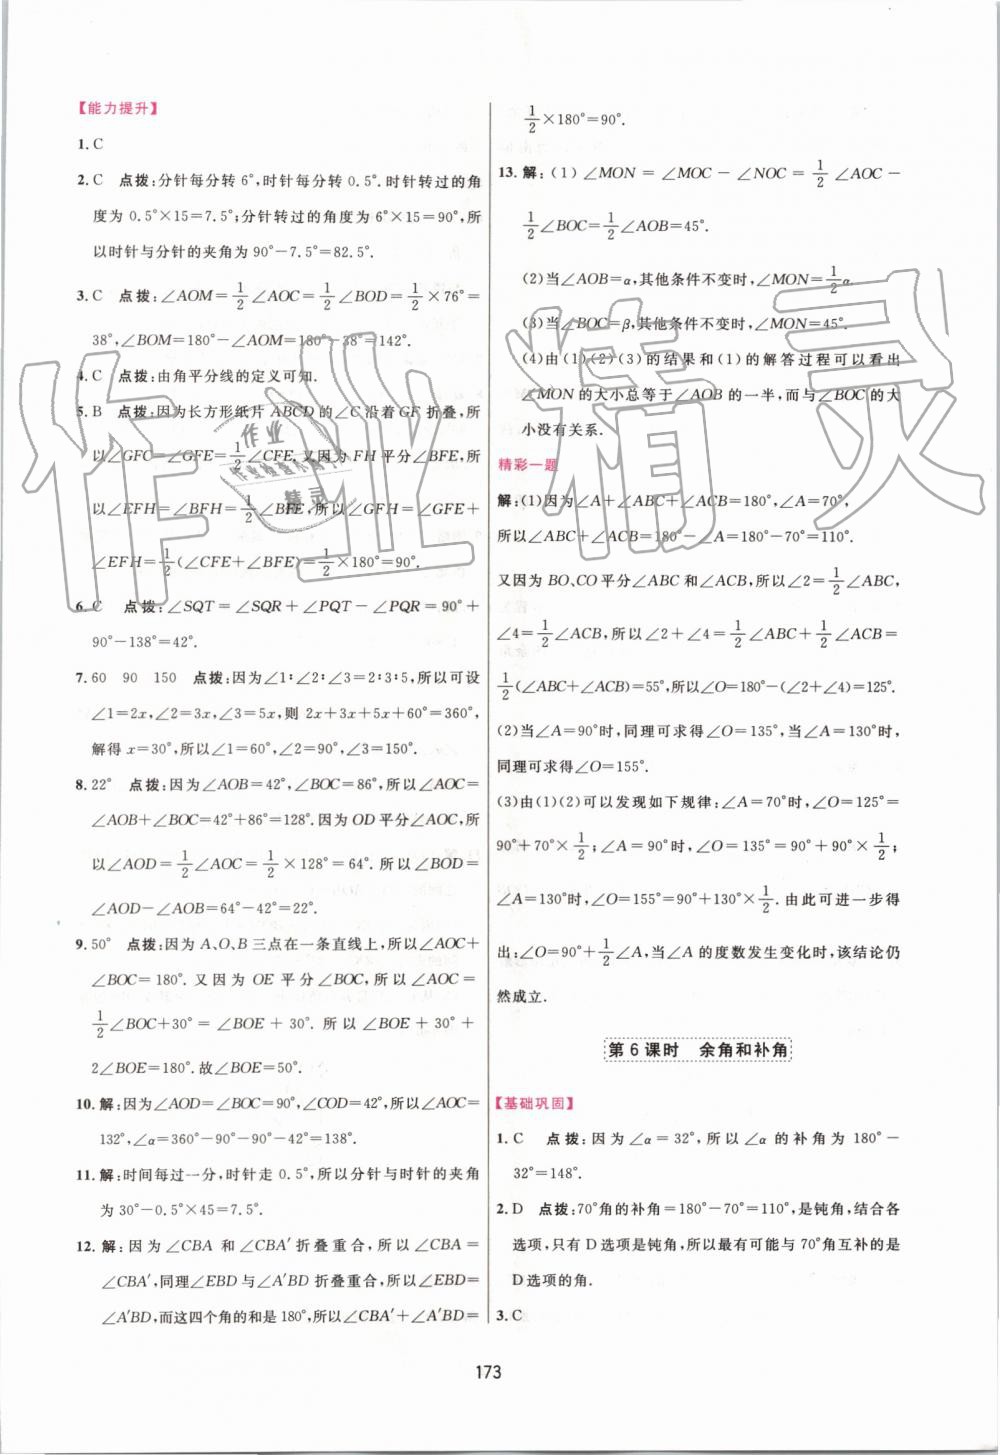 【能力提升】
1. C
2. C 点拨:分针每分转 6°,时针每分转 0.5°.时针转过的角
度为 0.5°×15=7.5°;分针转过的角度为 6°×15=90°,所
以时针与分针的夹角为 90°-7.5°=82.5°.
3. C 点拨:∠AOM=1/2∠AOC=1/2∠BOD=1/2×76°=
38°,∠BOM=180°-∠AOM=180°-38°=142°.
4. C 点拨:由角平分线的定义可知.
5. B 点拨:因为长方形纸片 ABCD 的∠C 沿着 GF 折叠,所
以∠GFC=∠GFE=1/2∠CFE.又因为 FH 平分∠BFE,所
以∠EFH=∠BFH=1/2∠BFE,所以∠GFH=∠GFE+
∠EFH=1/2(∠CFE+∠BFE)=1/2×180°=90°.
6. C 点拨:∠SQT=∠SQR+∠PQT-∠PQR=90°+
90°-138°=42°.
7. 60 90 150 点拨:因为∠1∶∠2∶∠3=2∶3∶5,所以可设
∠1=2x,∠2=3x,∠3=5x,则 2x+3x+5x+60°=360°,
解得 x=30°,所以∠1=60°,∠2=90°,∠3=150°.
8. 22° 点拨:因为∠AOB=42°,∠BOC=86°,所以∠AOC=
∠AOB+∠BOC=42°+86°=128°.因为 OD 平分∠AOC,所
以∠AOD=1/2∠AOC=1/2×128°=64°.所以∠BOD=
∠AOD-∠AOB=64°-42°=22°.
9. 50° 点拨:因为 A、O、B 三点在一条直线上,所以∠AOC+
∠BOC=180°.又因为 OE 平分∠BOC,所以∠AOC=
1/2∠BOC+30°=∠BOE+30°.所以∠BOE+30°+
2∠BOE=180°.故∠BOE=50°.
10. 解:因为∠AOD=∠BOC=90°,∠COD=42°,所以∠AOC=
132°,∠α=360°-90°-90°-42°=138°.
11. 解:时间每过一分,时针走 0.5°,所以分针与时针的夹角
为 30°-0.5°×45=7.5°.
12. 解:因为∠CBA 和∠CBA′折叠重合,所以∠CBA=
∠CBA′,同理∠EBD 与∠A′BD 折叠重合,所以∠EBD=
∠A′BD,而这四个角的和是 180°,所以∠CBA′+∠A′BD=
1/2×180°=90°.
13. 解:(1)∠MON=∠MOC-∠NOC=1/2∠AOC-
1/2∠BOC=1/2∠AOB=45°.
(2)当∠AOB=α,其他条件不变时,∠MON=1/2α.
(3)当∠BOC=β,其他条件不变时,∠MON=45°.
(4)由(1)(2)(3)的结果和(1)的解答过程可以看出
∠MON 的大小总等于∠AOB 的一半,而与∠BOC 的大
小没有关系.
精彩一题
解:(1)因为∠A+∠ABC+∠ACB=180°,∠A=70°,
所以∠ABC+∠ACB=180°-∠A=180°-70°=110°.
又因为 BO、CO 平分∠ABC 和∠ACB,所以∠2=1/2∠ABC,
∠4=1/2∠ACB,所以∠2+∠4=1/2∠ABC+1/2∠ACB=
1/2(∠ABC+∠ACB)=55°,所以∠O=180°-(∠2+∠4)=125°.
(2)当∠A=90°时,同理可求得∠O=135°,当∠A=130°时,
同理可求得∠O=155°.
(3)由(1)(2)可以发现如下规律:∠A=70°时,∠O=125°=
90°+70°×1/2;∠A=90°时,∠O=135°=90°+90°×1/2;
∠A=130°时,∠O=155°=90°+130°×1/2.由此可进一步得
出:∠O=90°+1/2∠A,当∠A 的度数发生变化时,该结论仍
然成立.
第 6 课时 余角和补角
【基础巩固】
1. C 点拨:因为∠α=32°,所以∠α的补角为 180°-
32°=148°.
2. D 点拨:70°角的补角=180°-70°=110°,是钝角,结合各
选项,只有 D 选项是钝角,所以最有可能与 70°角互补的是
D 选项的角.
3. C
173
作业精灵
作业
精灵